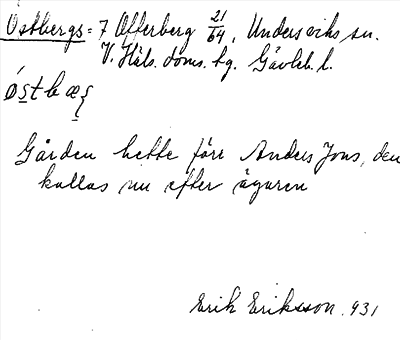 Östbergs = 7 Offerberg 21/64, Undersviks sn.
V. Häls. doms. tg. Gävleb. l.
östbæʂ
Gården hette förr Anders Jons, den
kallas nu efter ägaren
Erik Eriksson. 931